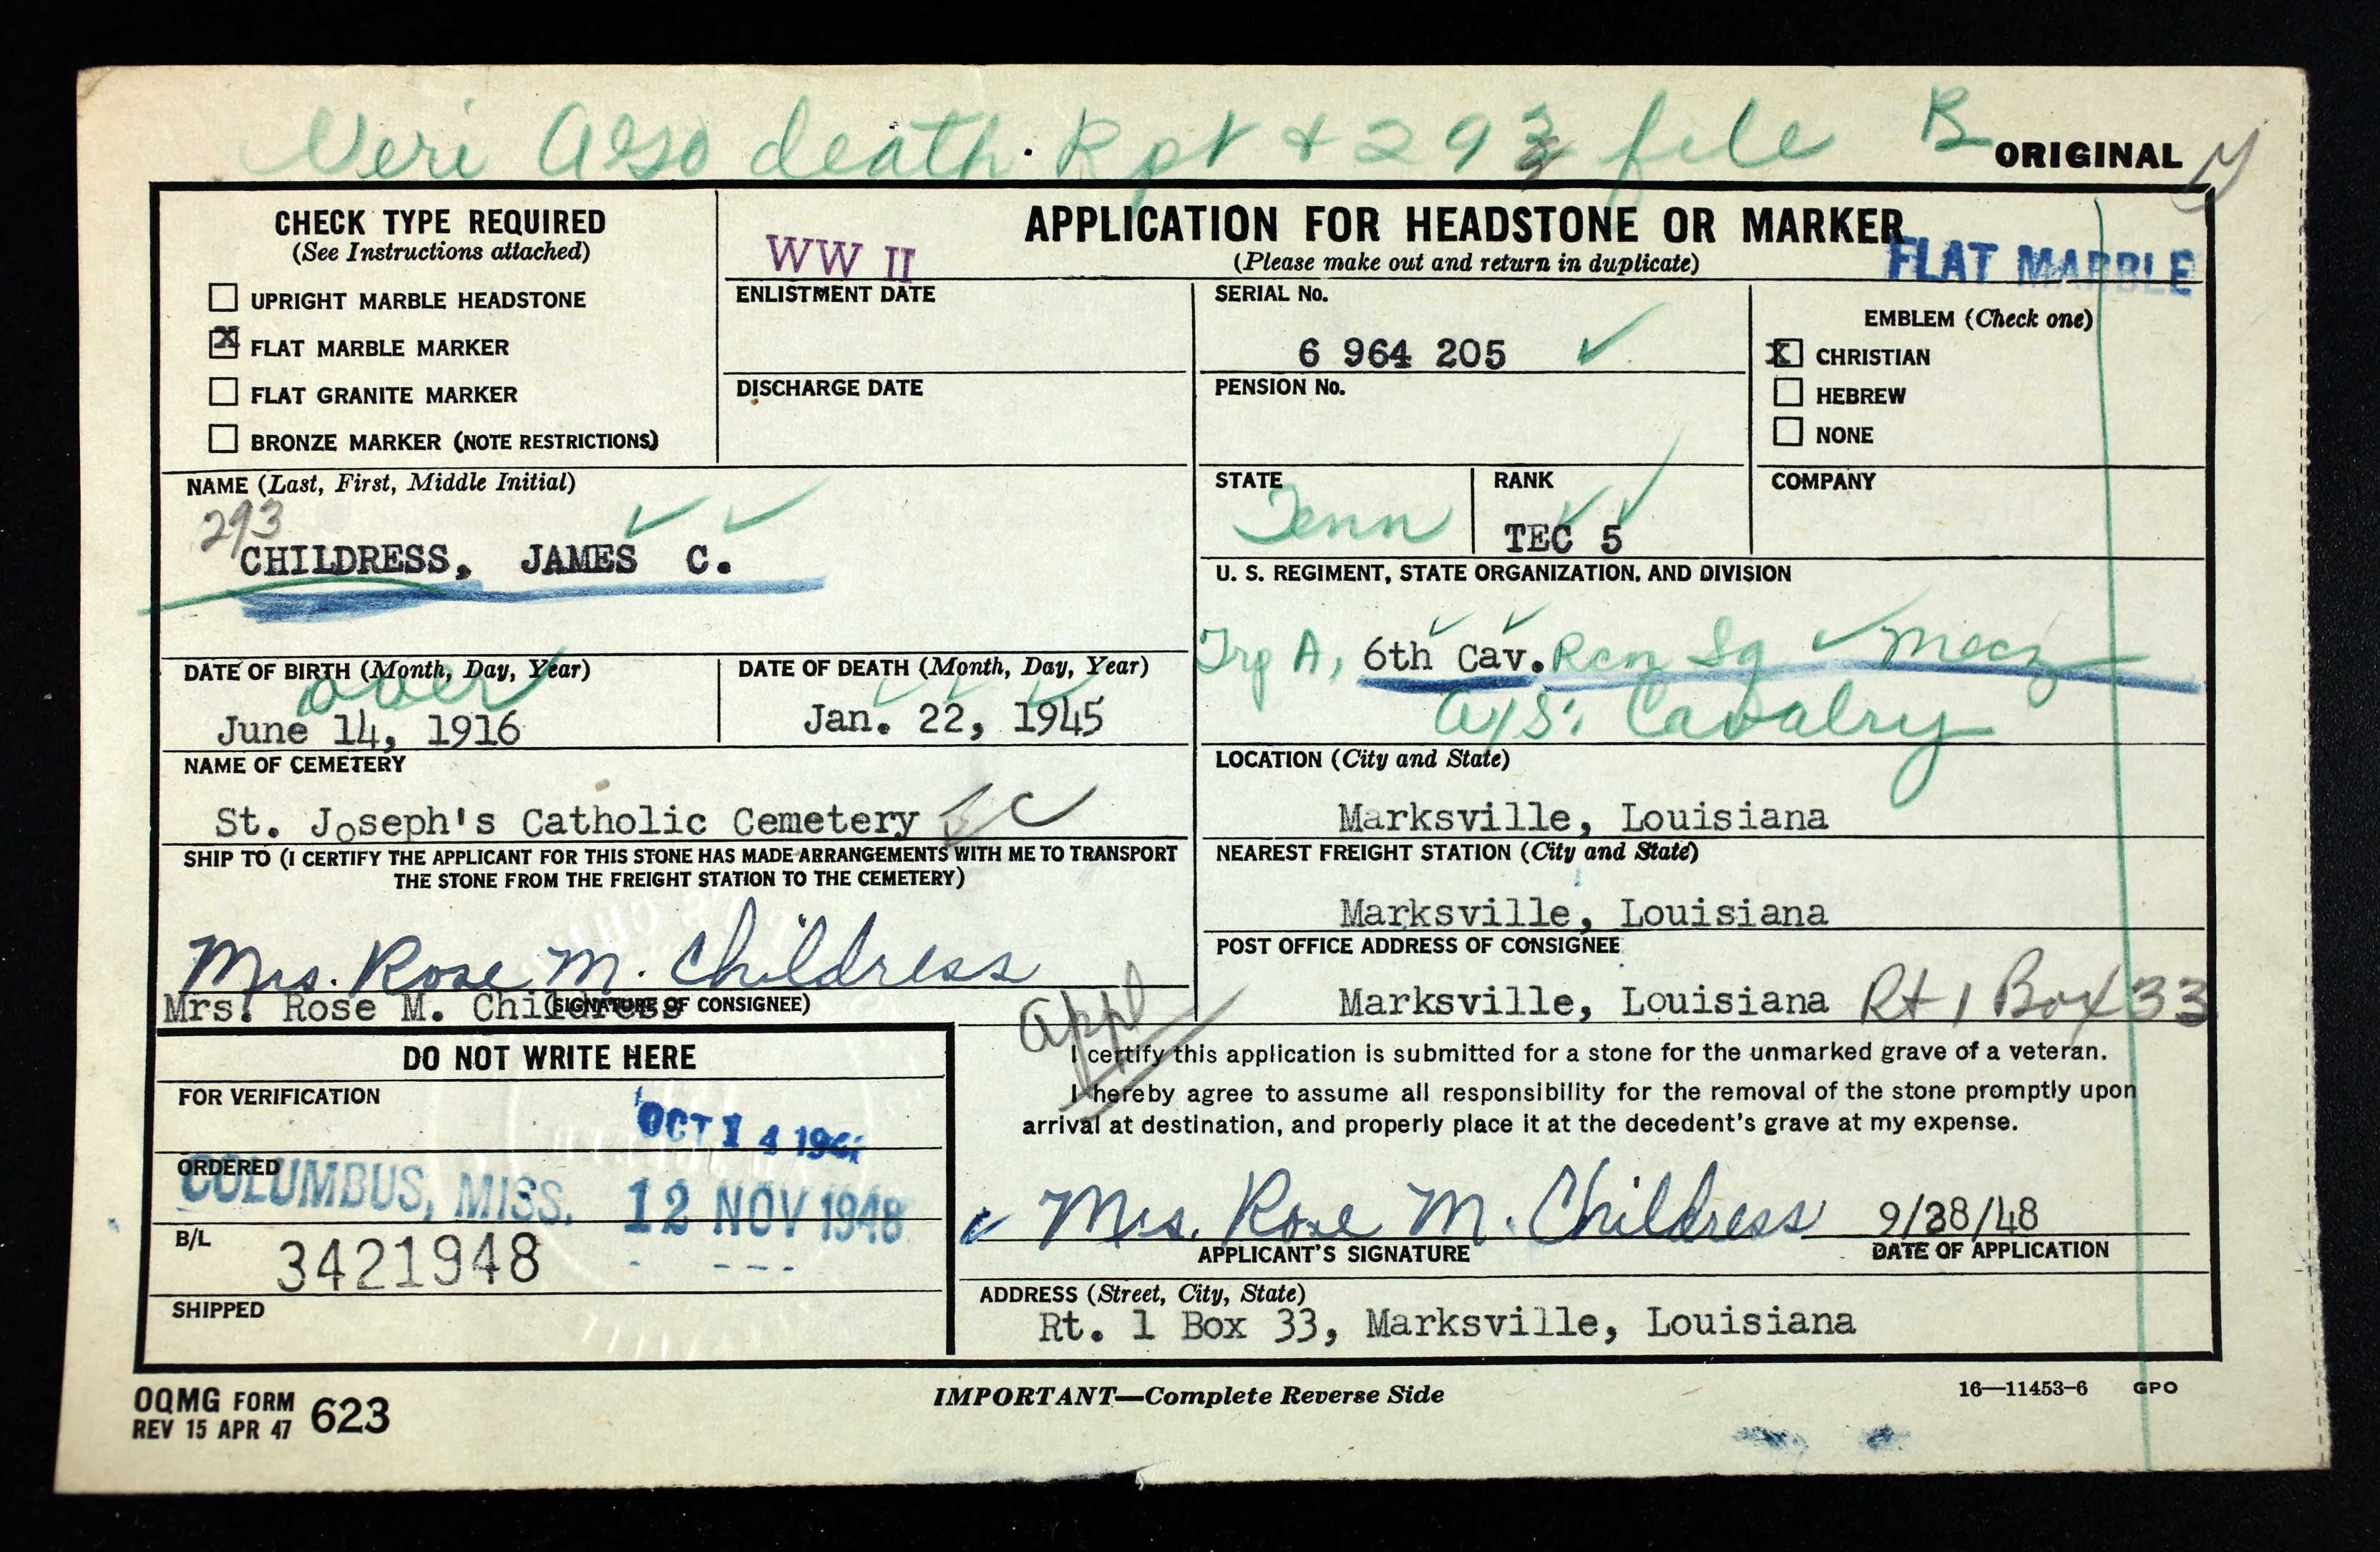 Veri Also death Rpt & 293 file B
ORIGINAL
CHECK TYPE REQUIRED
(See Instructions attached)
UPRIGHT MARBLE HEADSTONE
X FLAT MARBLE MARKER
FLAT GRANITE MARKER
BRONZE MARKER (NOTE RESTRICTIONS)
WW II
APPLICATION FOR HEADSTONE OR MARKER
(Please make out and return in duplicate)
FLAT MARBLE
ENLISTMENT DATE
DISCHARGE DATE
SERIAL No.
6 964 205 ✓
PENSION No.
EMBLEM (Check one)
X CHRISTIAN
HEBREW
NONE
NAME (Last, First, Middle Initial)
293
CHILDRESS, JAMES C.
STATE
Tenn
RANK
TEC 5
COMPANY
U. S. REGIMENT, STATE ORGANIZATION, AND DIVISION
Trp A, 6th Cav. Rcn Sq Mecz
A/S: Cavalry
DATE OF BIRTH (Month, Day, Year)
over
June 14, 1916
DATE OF DEATH (Month, Day, Year)
Jan. 22, 1945
NAME OF CEMETERY
St. Joseph's Catholic Cemetery
LOCATION (City and State)
Marksville, Louisiana
SHIP TO (I CERTIFY THE APPLICANT FOR THIS STONE HAS MADE ARRANGEMENTS WITH ME TO TRANSPORT
THE STONE FROM THE FREIGHT STATION TO THE CEMETERY)
Mrs. Rose M. Childress
Mrs. Rose M. Childress
(SIGNATURE OF CONSIGNEE)
NEAREST FREIGHT STATION (City and State)
Marksville, Louisiana
POST OFFICE ADDRESS OF CONSIGNEE
Marksville, Louisiana Rt 1 Box 33
appl
DO NOT WRITE HERE
FOR VERIFICATION
OCT 14
ORDERED
COLUMBUS, MISS. 12 NOV 1948
B/L
3421948
SHIPPED
I certify this application is submitted for a stone for the unmarked grave of a veteran.
I hereby agree to assume all responsibility for the removal of the stone promptly upon
arrival at destination, and properly place it at the decedent's grave at my expense.
Mrs. Rose M. Childress 9/28/48
APPLICANT'S SIGNATURE DATE OF APPLICATION
ADDRESS (Street, City, State)
Rt. 1 Box 33, Marksville, Louisiana
OQMG FORM 623
REV 15 APR 47
IMPORTANT—Complete Reverse Side
16—11453-6 GPO